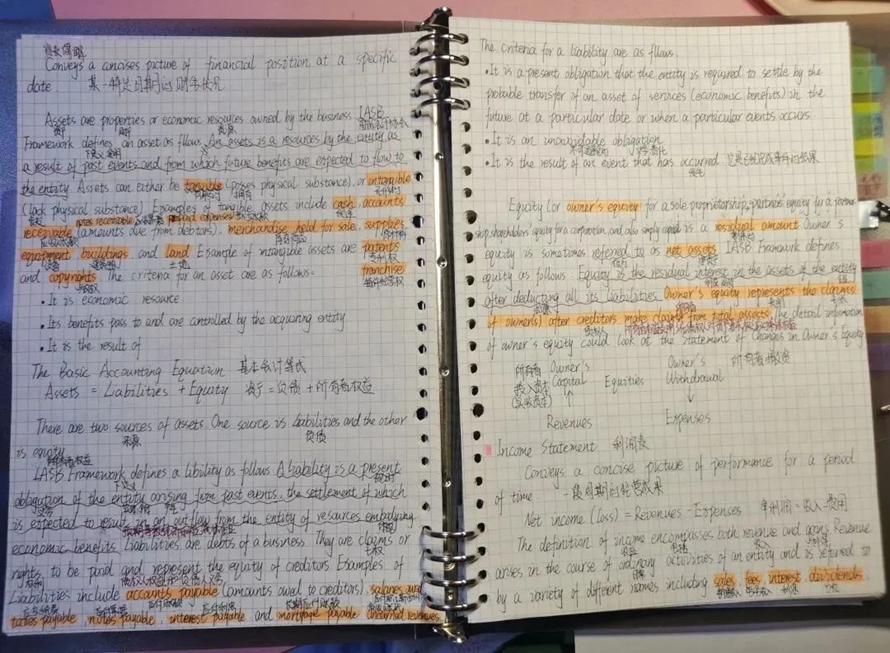 Conveys a concises picture of financial position at a specific
date 某一特定日期的财务状况
Assets are properties or economic resources owned by the business IASB
Framework defines an asset as fllows An assets is a resources by the entity as
a result of past events and from which future benefits are expected to flow to
the entity Assets can either be tangible (poses physical substance), or intangible
(lack physical substance) Examples of tangible assets include cash accounts
receivable (amounts due from debtors), merchandise held for sale, supplies
equipment buildings and land Example of intangible assets are patents
专利权
and copyrights The criteria for an asset are as follows: franchise
• It is economic resource
• Its benefits pass to and are controlled by the acquiring entity
• It is the result of
The Basic Accounting Equation 基本会计等式
Assets = Liabilities + Equity 资产=负债+所有者权益
There are two sources of assets One source is Liabilities and the other
来源 负债
is equity
所有者权益
IASB Framework defines a libility as follows A liability is a present
obligation of the entity arising from past events, the settlement of which
is expected to result in an outflow from the entity of resources embodying
economic benefits Liabilities are debts of a business They are claims or
rights to be paid and represent the equity of creditors Examples of
Liabilities include accounts payable (amounts owed to creditors), salaries and
taxes payable, notes payable interest payable and mortgage payable unearned revenues
The criteria for a liability are as fllows.
• It is a present obligation that the entity is required to settle by the
probable transfer of an asset of services (economic benefits) in the
future at a particular date or when a particular events occurs
• It is an inavoidable obligation
• It is the result of an event that has occurred
Equity (or owner's equity for a sole proprietorship, partners' equity for a partner
ship, shareholders' equity for a corporation and also simply capital is a residual amount Owner's
equity is sometimes referred to as net assets IASB Framwork defines
equity as follows Equity is the residual interest in the assets of the entity
after deducting all its liabilities Owner's equity represents the claims
of owner(s) after creditors make claims from total assets The detail information
of owner's equity could look at the Statement of Changes in Owner's Equity
所有者 Owner's Owner's 所有者撤资
投入资本 Capital Equities Withdrawal
(实收资本) ↑ ↓
Revenues Expenses
Income Statement 利润表
Conveys a concise picture of performance for a period
of time 一段时期的经营成果
Net income (loss) = Revenues - Expenses 净利润=收入-费用
The definition of income encompasses both revenue and gains Revenue
arises in the course of ordinary activities of an entity and is referred to
by a variety of different names including sales fees interest dividends